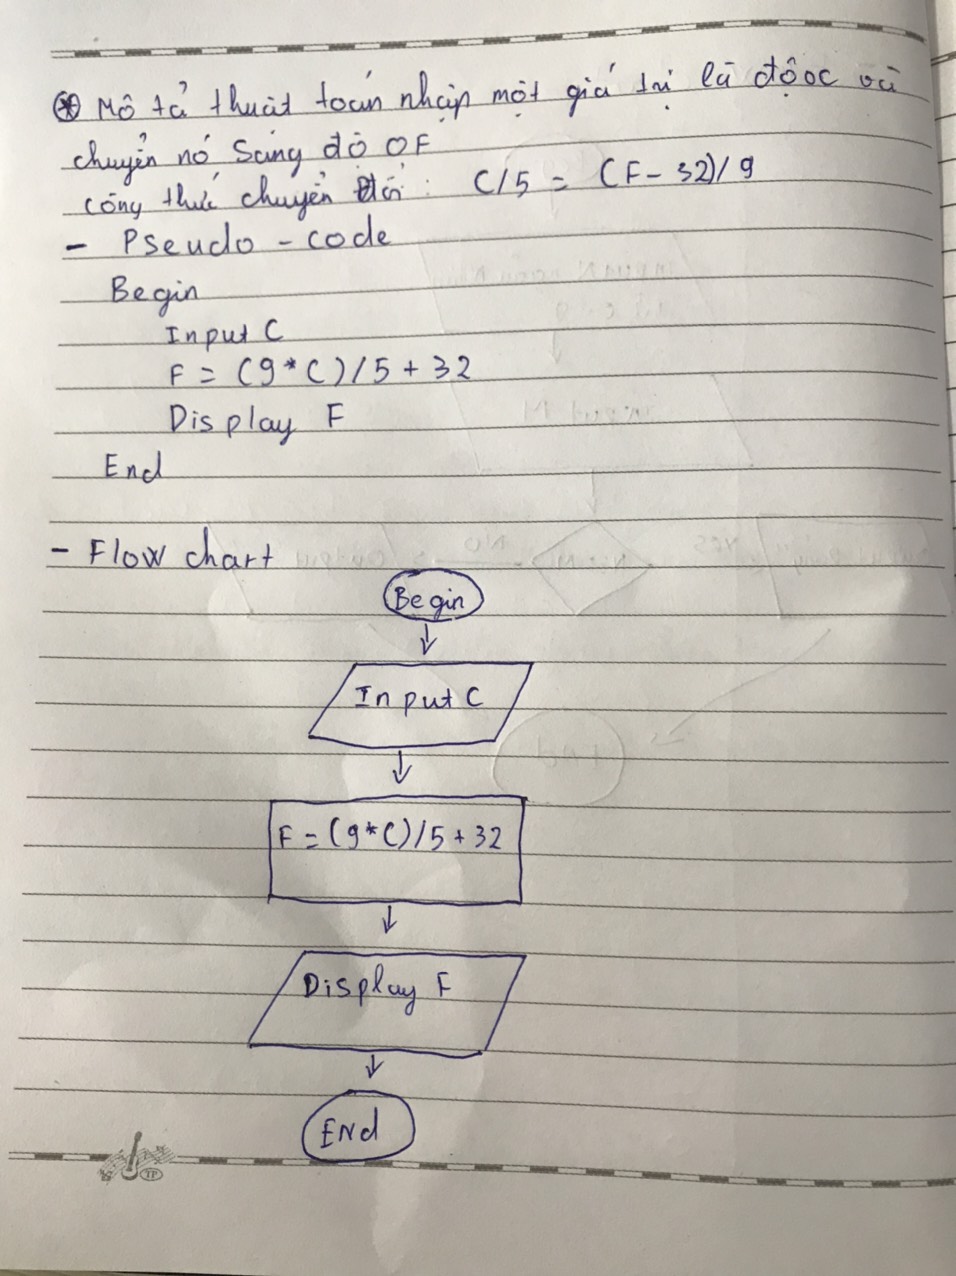 ⊛ Mô tả thuật toán nhập một giá trị là độ oC và
chuyển nó sang độ OF
công thức chuyển đổi: C/5 = (F-32)/9
- Pseudo-code
Begin
Input C
F = (9*C)/5+32
Display F
End
- Flow chart
Begin
Input C
F = (9*C)/5+32
Display F
ENd
TP